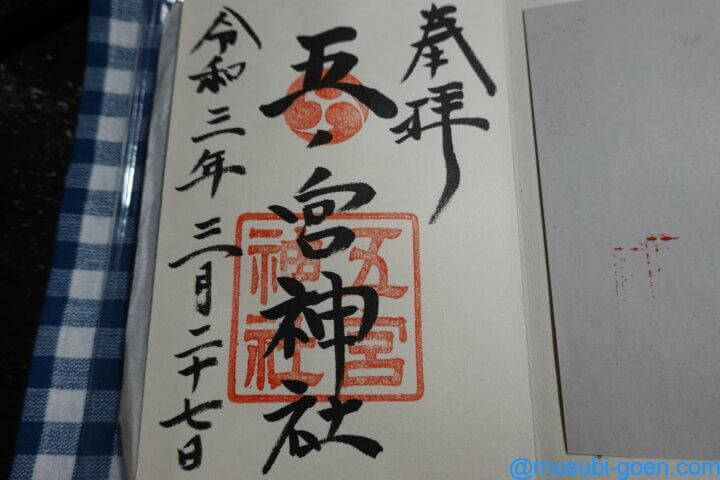 奉拝
五ノ宮神社
五宮
神社
令和三年三月二十七日
@musubi-goen.com